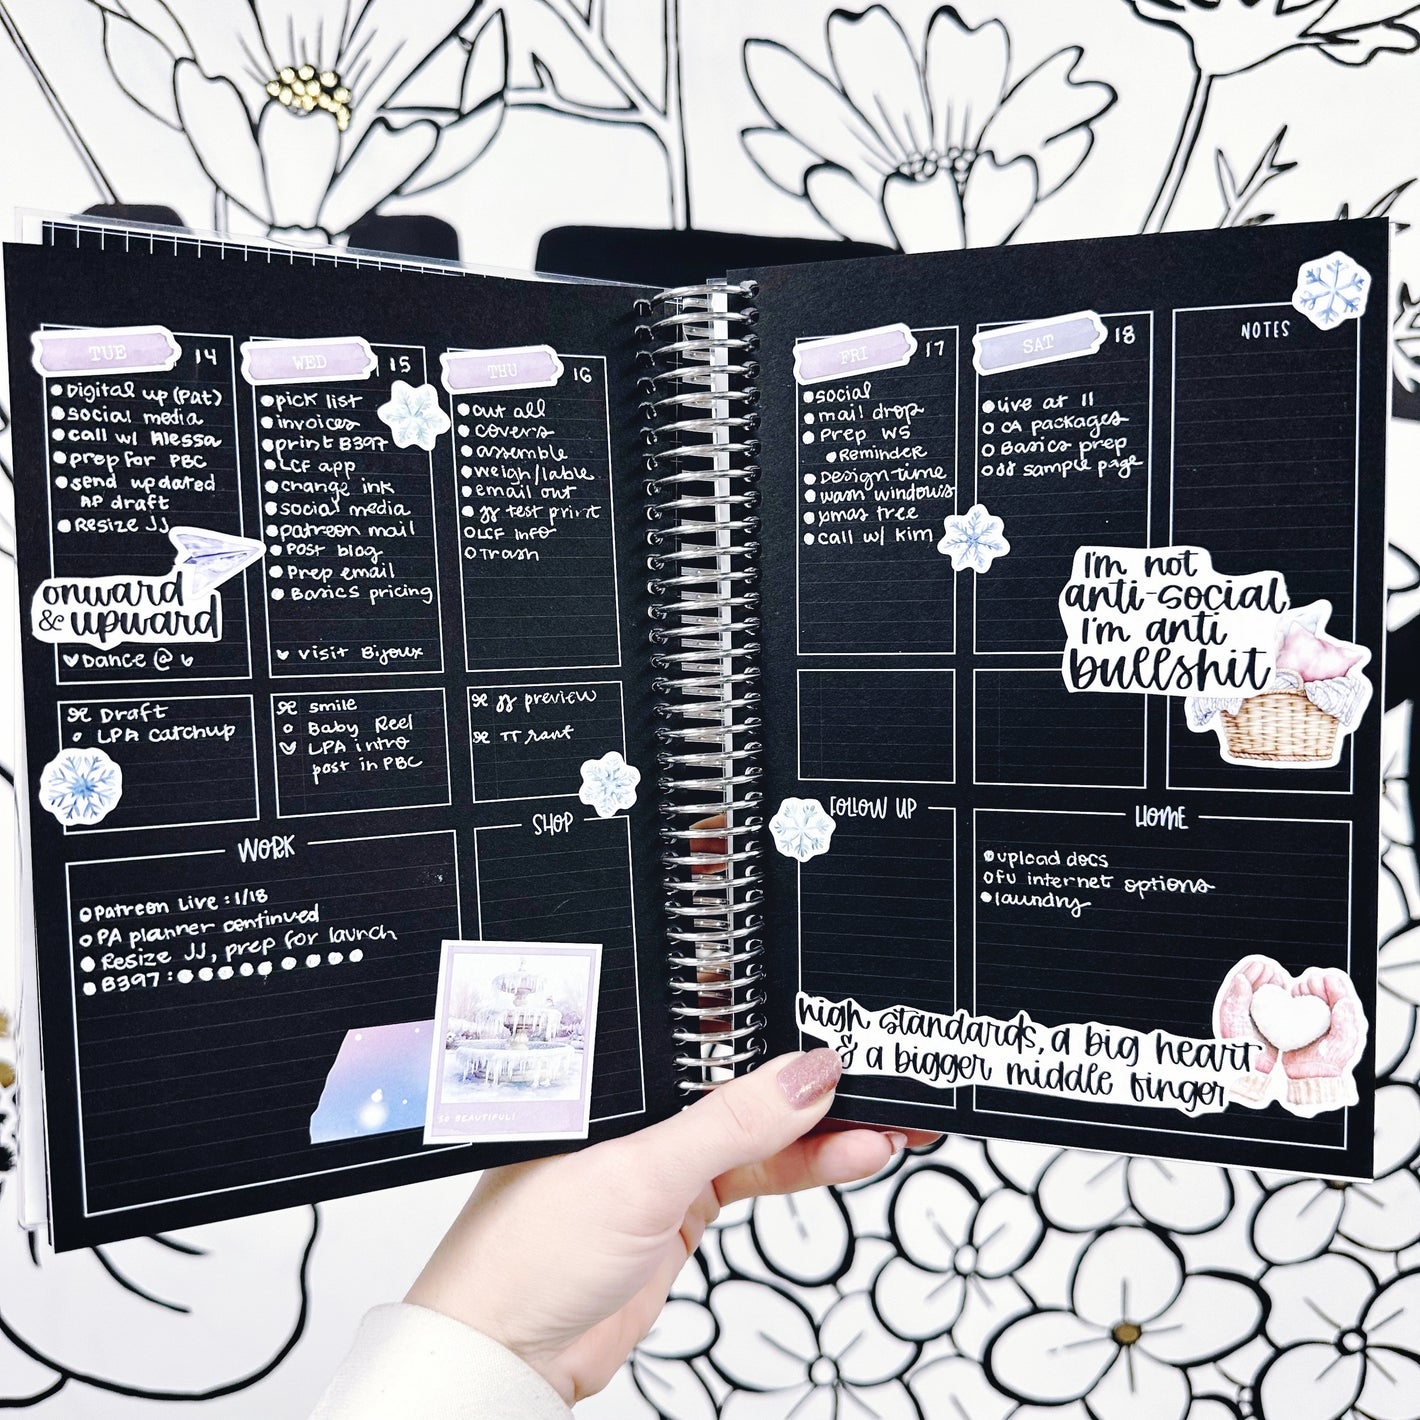 TUE 14
Digital up (Pat)
social media
call w/ Alessa
prep for PBC
send updated
AP draft
Resize JJ
onward
& upward
Dance @ 6
Draft
LPA catchup
WED 15
pick list
invoices
print B397
LCF app
change ink
social media
patreon mail
Post blog
Prep email
Basics pricing
visit Bijoux
smile
Baby Reel
LPA intro
post in PBC
THU 16
cut all
covers
assemble
weigh/lable
email out
JJ test print
LCF info
Trash
JJ preview
TT rant
WORK
Patreon Live : 1/18
PA planner continued
Resize JJ, prep for launch
B397 :
SHOP
SO BEAUTIFUL!
FRI 17
social
mail drop
Prep WS
Reminder
Design time
wash windows
xmas tree
call w/ Kim
SAT 18
live at 11
CA packages
Basics prep
JJ sample page
NOTES
I'm not
anti-social,
I'm anti
bullshit
FOLLOW UP
HOME
upload docs
FU internet options
laundry
high standards, a big heart
& a bigger middle finger